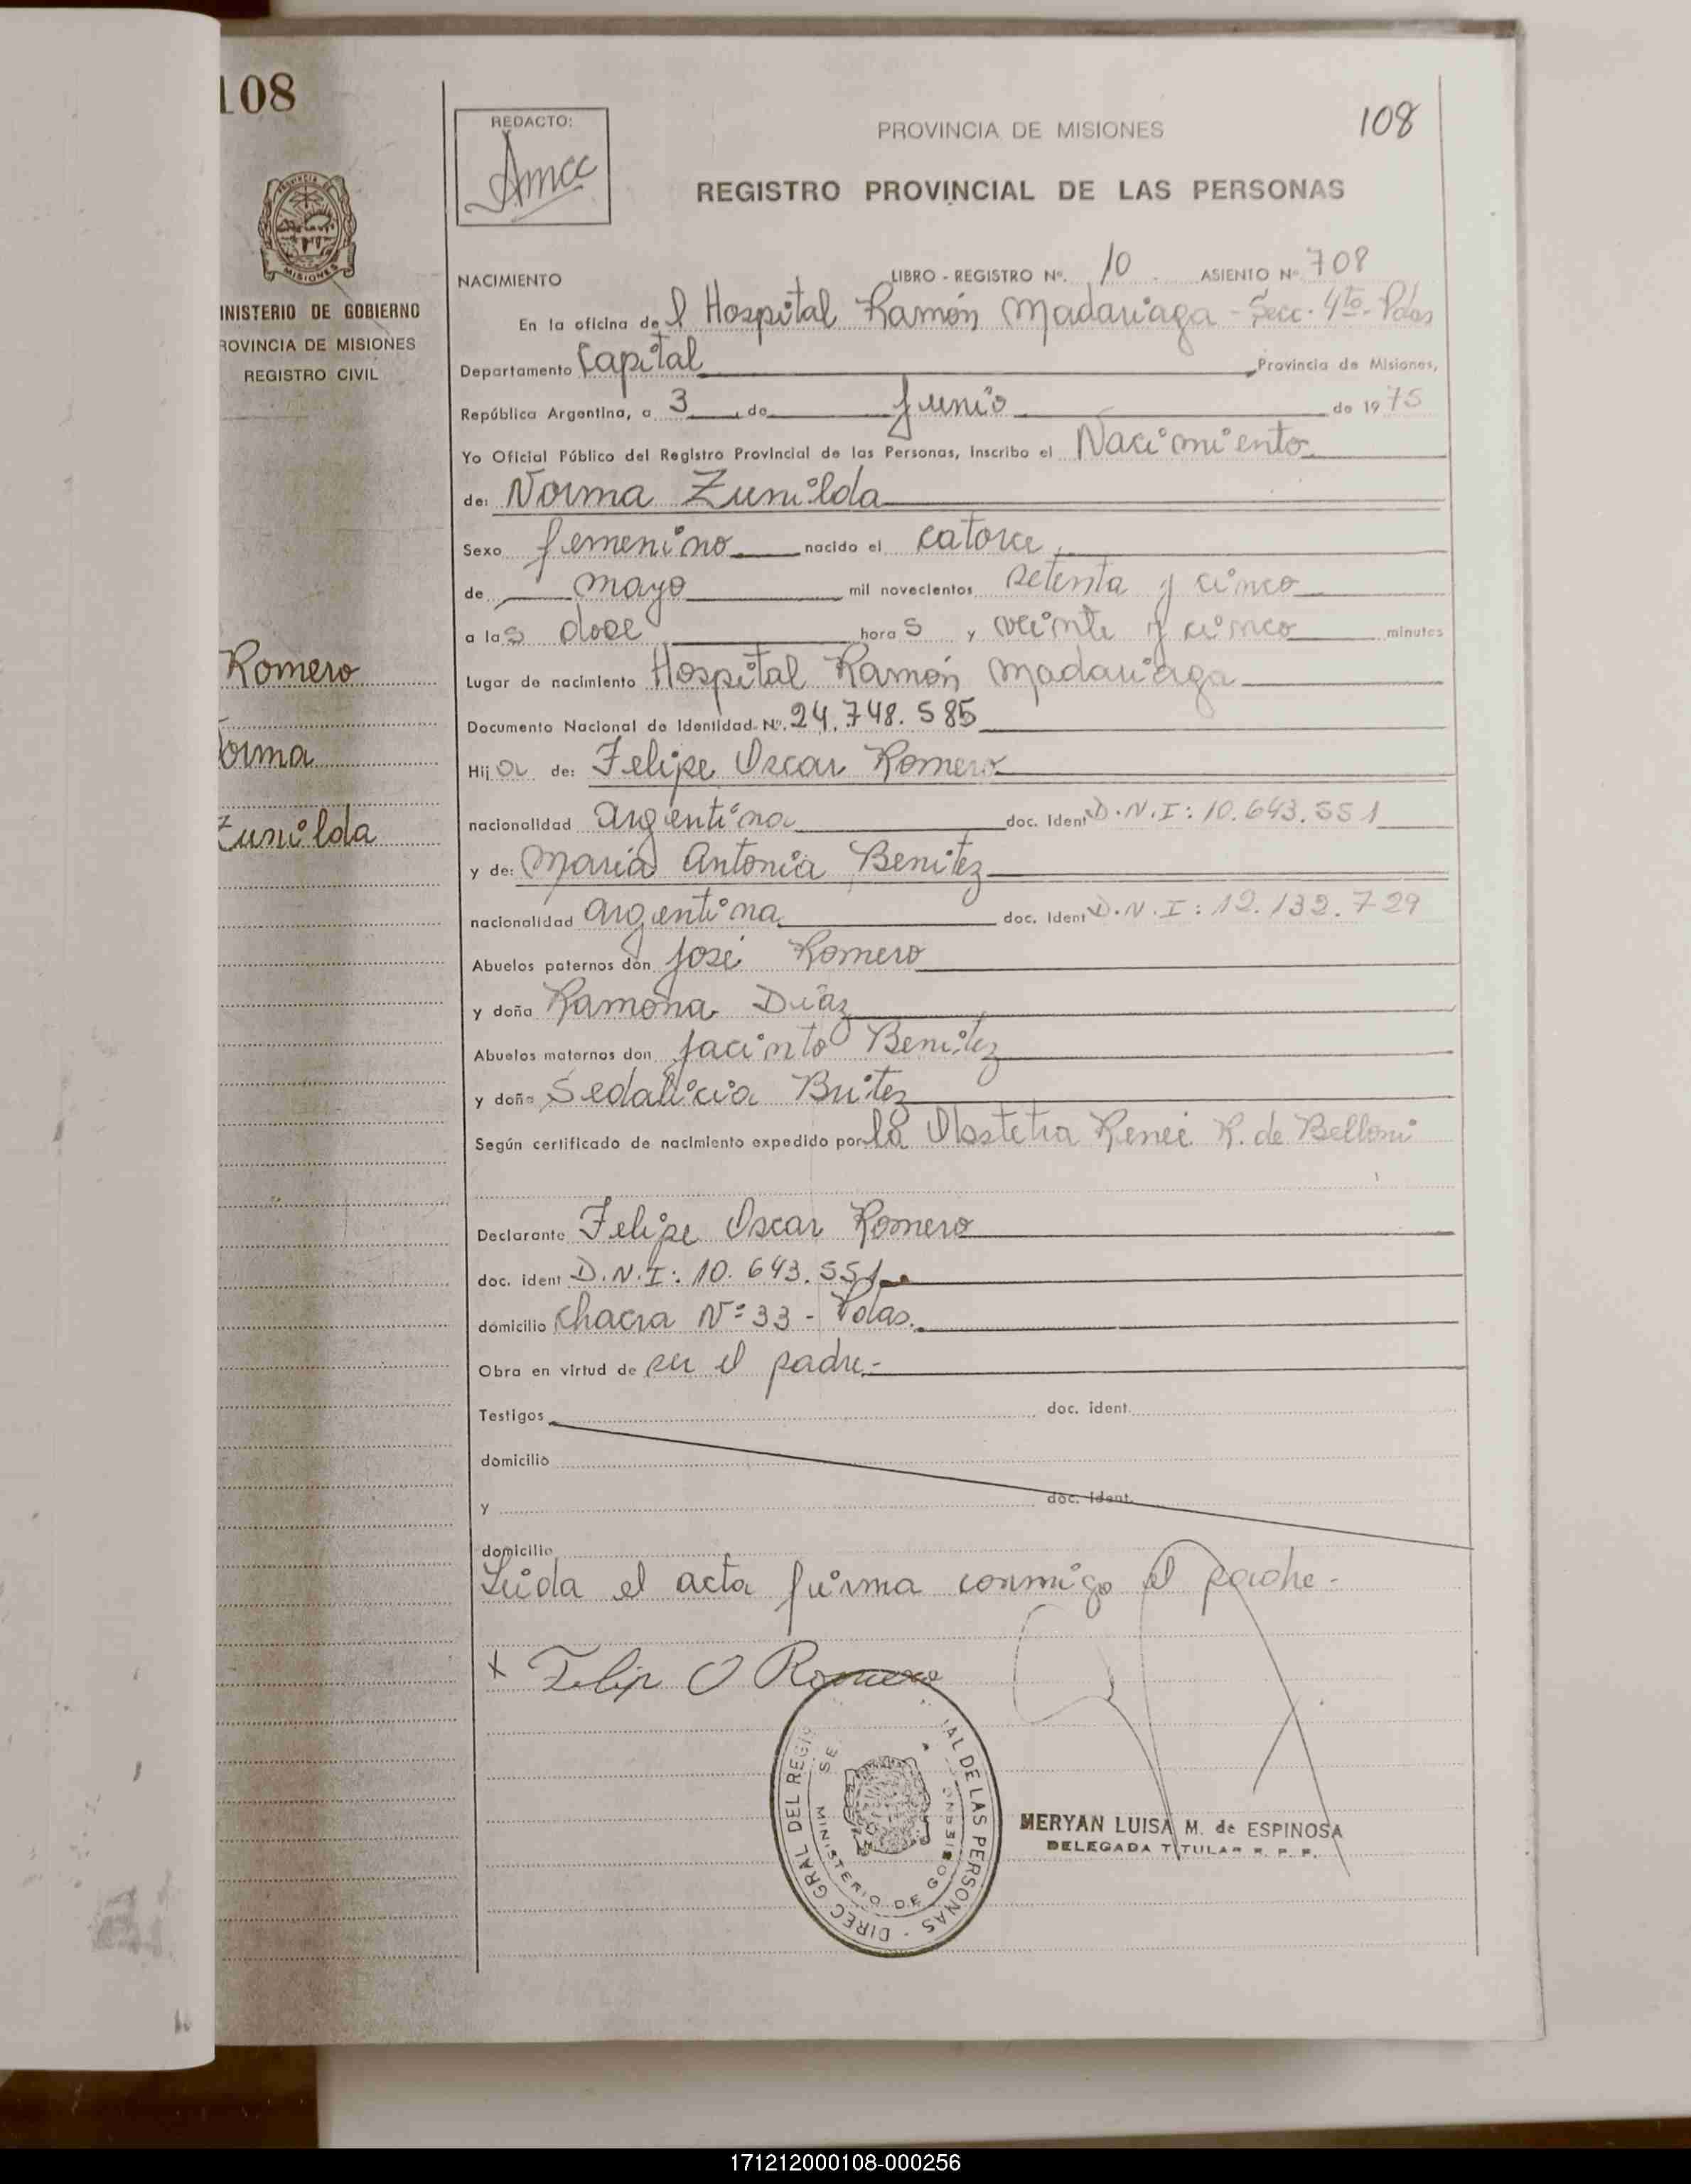 108
MINISTERIO DE GOBIERNO
PROVINCIA DE MISIONES
REGISTRO CIVIL
Romero
Norma
Zunilda
REDACTO:
108
PROVINCIA DE MISIONES
REGISTRO PROVINCIAL DE LAS PERSONAS
NACIMIENTO LIBRO - REGISTRO Nº. 10 ASIENTO Nº 708
En la oficina del Hospital Ramón Madariaga - Secc. 4ta - Pdas
Departamento Capital Provincia de Misiones,
República Argentina, a 3 de Junio de 1975
Yo Oficial Público del Registro Provincial de las Personas, Inscribo el Nacimiento
de: Norma Zunilda
Sexo femenino nacido el catorce
de mayo mil novecientos setenta y cinco
a las doce horas y veinte y cinco minutos
Lugar de nacimiento Hospital Ramón Madariaga
Documento Nacional de Identidad Nº. 24.748.585
Hija de: Felipe Oscar Romero
nacionalidad argentina doc. Ident D.N.I: 10.643.551
y de: María Antonia Benitez
nacionalidad argentina doc. Ident D.N.I: 12.132.729
Abuelos paternos don José Romero
y doña Ramona Díaz
Abuelos maternos don Jacinto Benitez
y doña Sedalicia Britez
Según certificado de nacimiento expedido por la Obstetra Reneé R. de Belloni
Declarante Felipe Oscar Romero
doc. ident D.N.I: 10.643.551
domicilio Chacra Nº 33 - Pdas.
Obra en virtud de ser el padre.-
Testigos doc. ident.
domicilio
y doc. ident.
domicilio
Leida el acta firma conmigo el padre -
x Felip O Romero
DIREC GRAL DEL REGIS AL DE LAS PERSONAS
MINISTERIO DE GOB
MERYAN LUISA M. de ESPINOSA
DELEGADA TITULAR R. P. P.
171212000108-000256